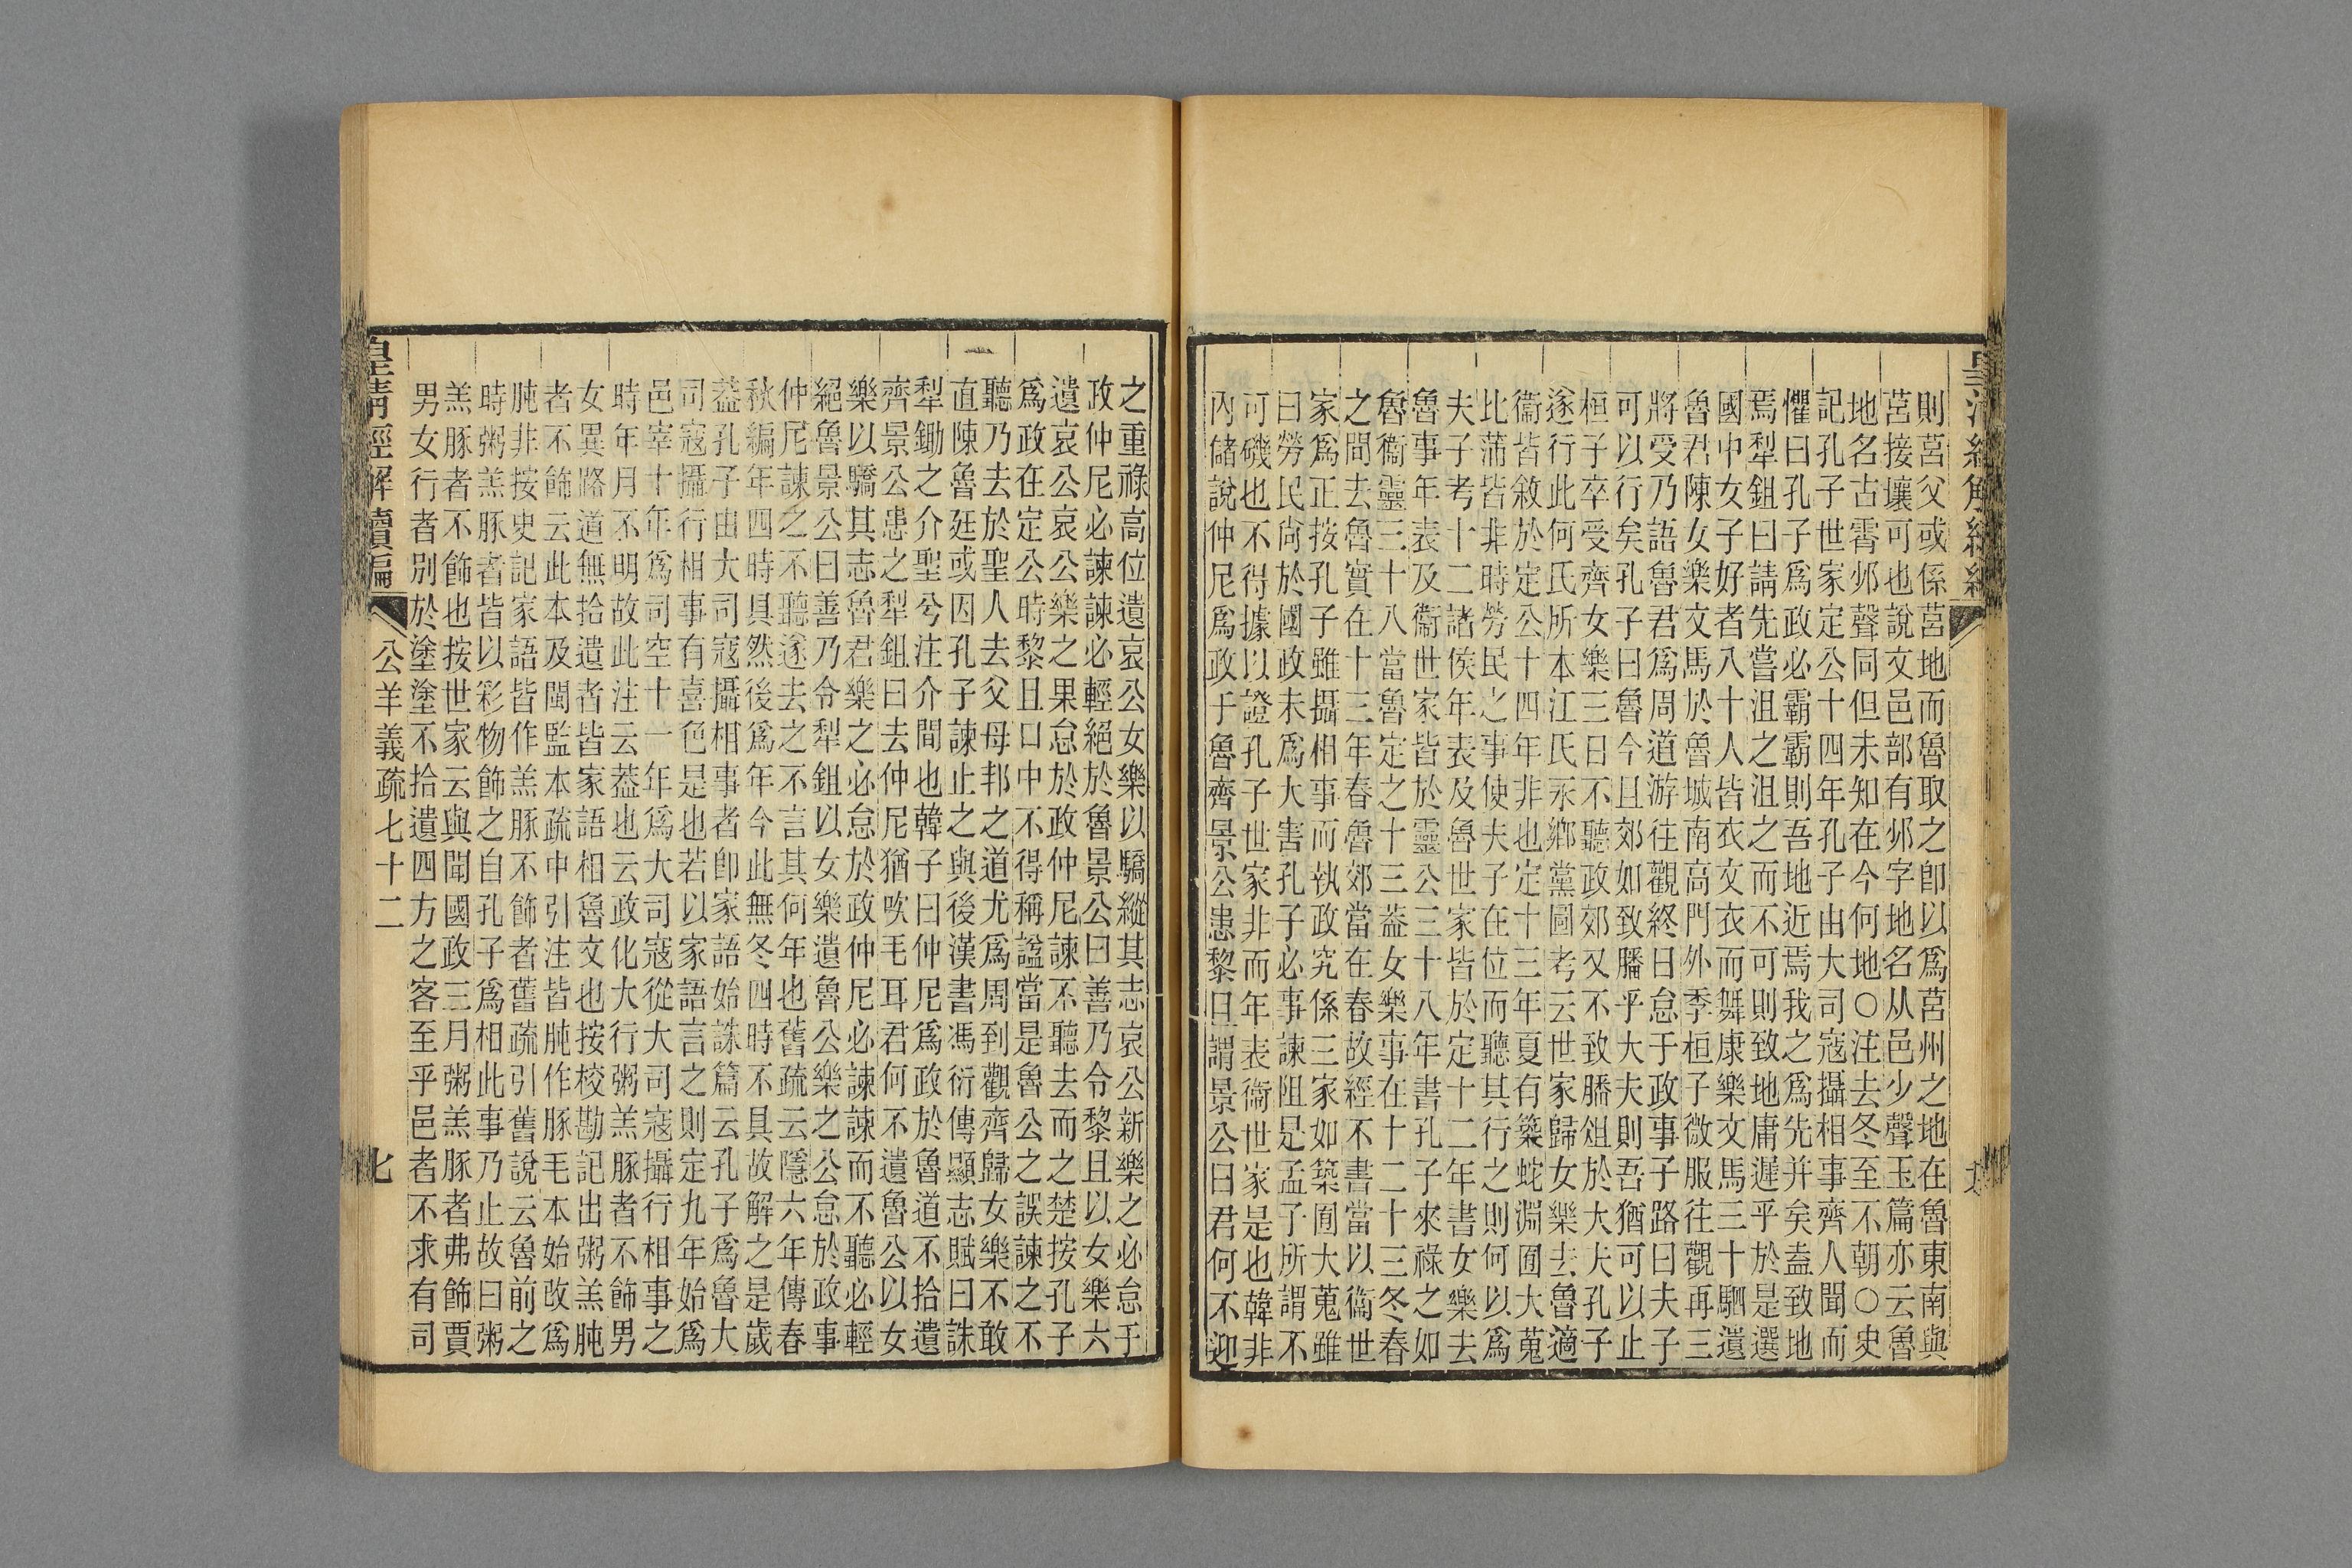 則莒父或係莒地而魯取之卽以爲莒州之地在魯東南與
莒接壤可也說文邑部有邜字地名从邑少聲玉篇亦云魯
地名古霄邜聲同但未知在今何地○注去冬至不朝○史
記孔子世家定公十四年孔子由大司寇攝相事齊人聞而
懼曰孔子爲政必霸霸則吾地近焉我之爲先并矣盍致地
焉犁鉏曰請先嘗沮之沮之而不可則致地庸遲乎於是選
國中女子好者八十人皆衣文衣而舞康樂文馬三十駟遺
魯君陳女樂文馬於魯城南高門外季桓子微服往觀再三
將受乃語魯君爲周道游往觀終日怠于政事子路曰夫子
可以行矣孔子曰魯今且郊如致膰乎大夫則吾猶可以止
桓子卒受齊女樂三日不聽政郊又不致膰俎於大夫孔子
遂行此何氏所本江氏永鄉黨圖考云世家歸女樂去魯適
衞皆敘於定公十四年非也定十三年夏有築蛇淵囿大蒐
比蒲皆非時勞民之事使夫子在位而聽其行之則何以爲
夫子考十二諸侯年表及魯世家皆於定十二年書女樂去
魯事年表及衞世家皆於靈公三十八年書孔子來祿之如
魯衞靈三十八當魯定之十三葢女樂事在十二十三冬春
之間去魯實在十三年春魯郊當在春故經不書當以衞世
家爲正按孔子雖攝相事而執政究係三家如築囿大蒐雖
曰勞民尙於國政未爲大害孔子必事諫阻是孟子所謂不
可磯也不得據以證孔子世家非而年表衞世家是也韓非
內儲說仲尼爲政于魯齊景公患黎且謂景公曰君何不迎
之重祿高位遺哀公女樂以驕縱其志哀公新樂之必怠于
政仲尼必諫諫必輕絕於魯景公曰善乃令黎且以女樂六
遺哀公哀公樂之果怠於政仲尼諫不聽去而之楚按孔子
爲政在定公時黎且口中不得稱諡當是魯公之誤諫之不
聽乃去於聖人去父母邦之道尤爲周到觀齊歸女樂不敢
直陳魯廷或因孔子諫止之與後漢書馮衍傳顯志賦曰誅
犁鋤之介聖兮注介間也韓子曰仲尼爲政於魯道不拾遺
齊景公患之犁鉏曰去仲尼猶吹毛耳君何不遺魯公以女
樂以驕其志魯君樂之必怠於政仲尼必諫諫而不聽必輕
絕魯景公曰善乃令犁鉏以女樂遺魯公樂之公怠於政事
仲尼諫之不聽遂去之不言其何年也舊疏云隱六年傳春
秋編年四時具然後爲年今此無冬四時不具故解之是歲
葢孔子由大司寇攝相事者卽家語始誅篇云孔子爲魯大
司寇攝行相事有喜色是也若以家語言之則定九年始爲
邑宰十年爲司空十一年爲大司寇從大司寇攝行相事之
時年月不明故此注云葢也云政化大行粥羔豚者不飾男
女異路道無拾遺者皆家語相魯文也按校勘記出粥羔肫
者不飾云此本及閩監本疏中引注皆肫作豚毛本始改爲
肫非按史記家語皆作羔豚不飾者舊疏引舊說云魯前之
時粥羔豚者皆以彩物飾之自孔子爲相此事乃止故曰粥
羔豚者不飾也按世家云與聞國政三月粥羔豚者弗飾賈
男女行者別於塗塗不拾遺四方之客至乎邑者不求有司
皇淸經解續編
公羊義疏七十二
七